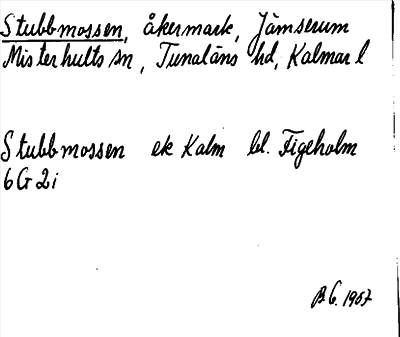 Stubbmossen, åkermark, Jämserum
Misterhults sn, Tunaläns hd, Kalmar l
Stubbmossen ek Kalm bl. Figeholm
6G2i
B G. 1967